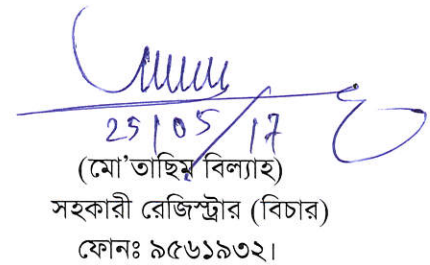 25/05/17
(মো'তাছিম বিল্যাহ)
সহকারী রেজিস্ট্রার (বিচার)
ফোনঃ ৯৫৬১৯৩২।